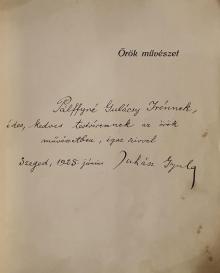 Örök művészet
Pálffyné Gulácsy Irénnek,
édes, kedves testvéremnek az örök
művészetben, igaz szívvel
Szeged, 1928. június Juhász Gyula